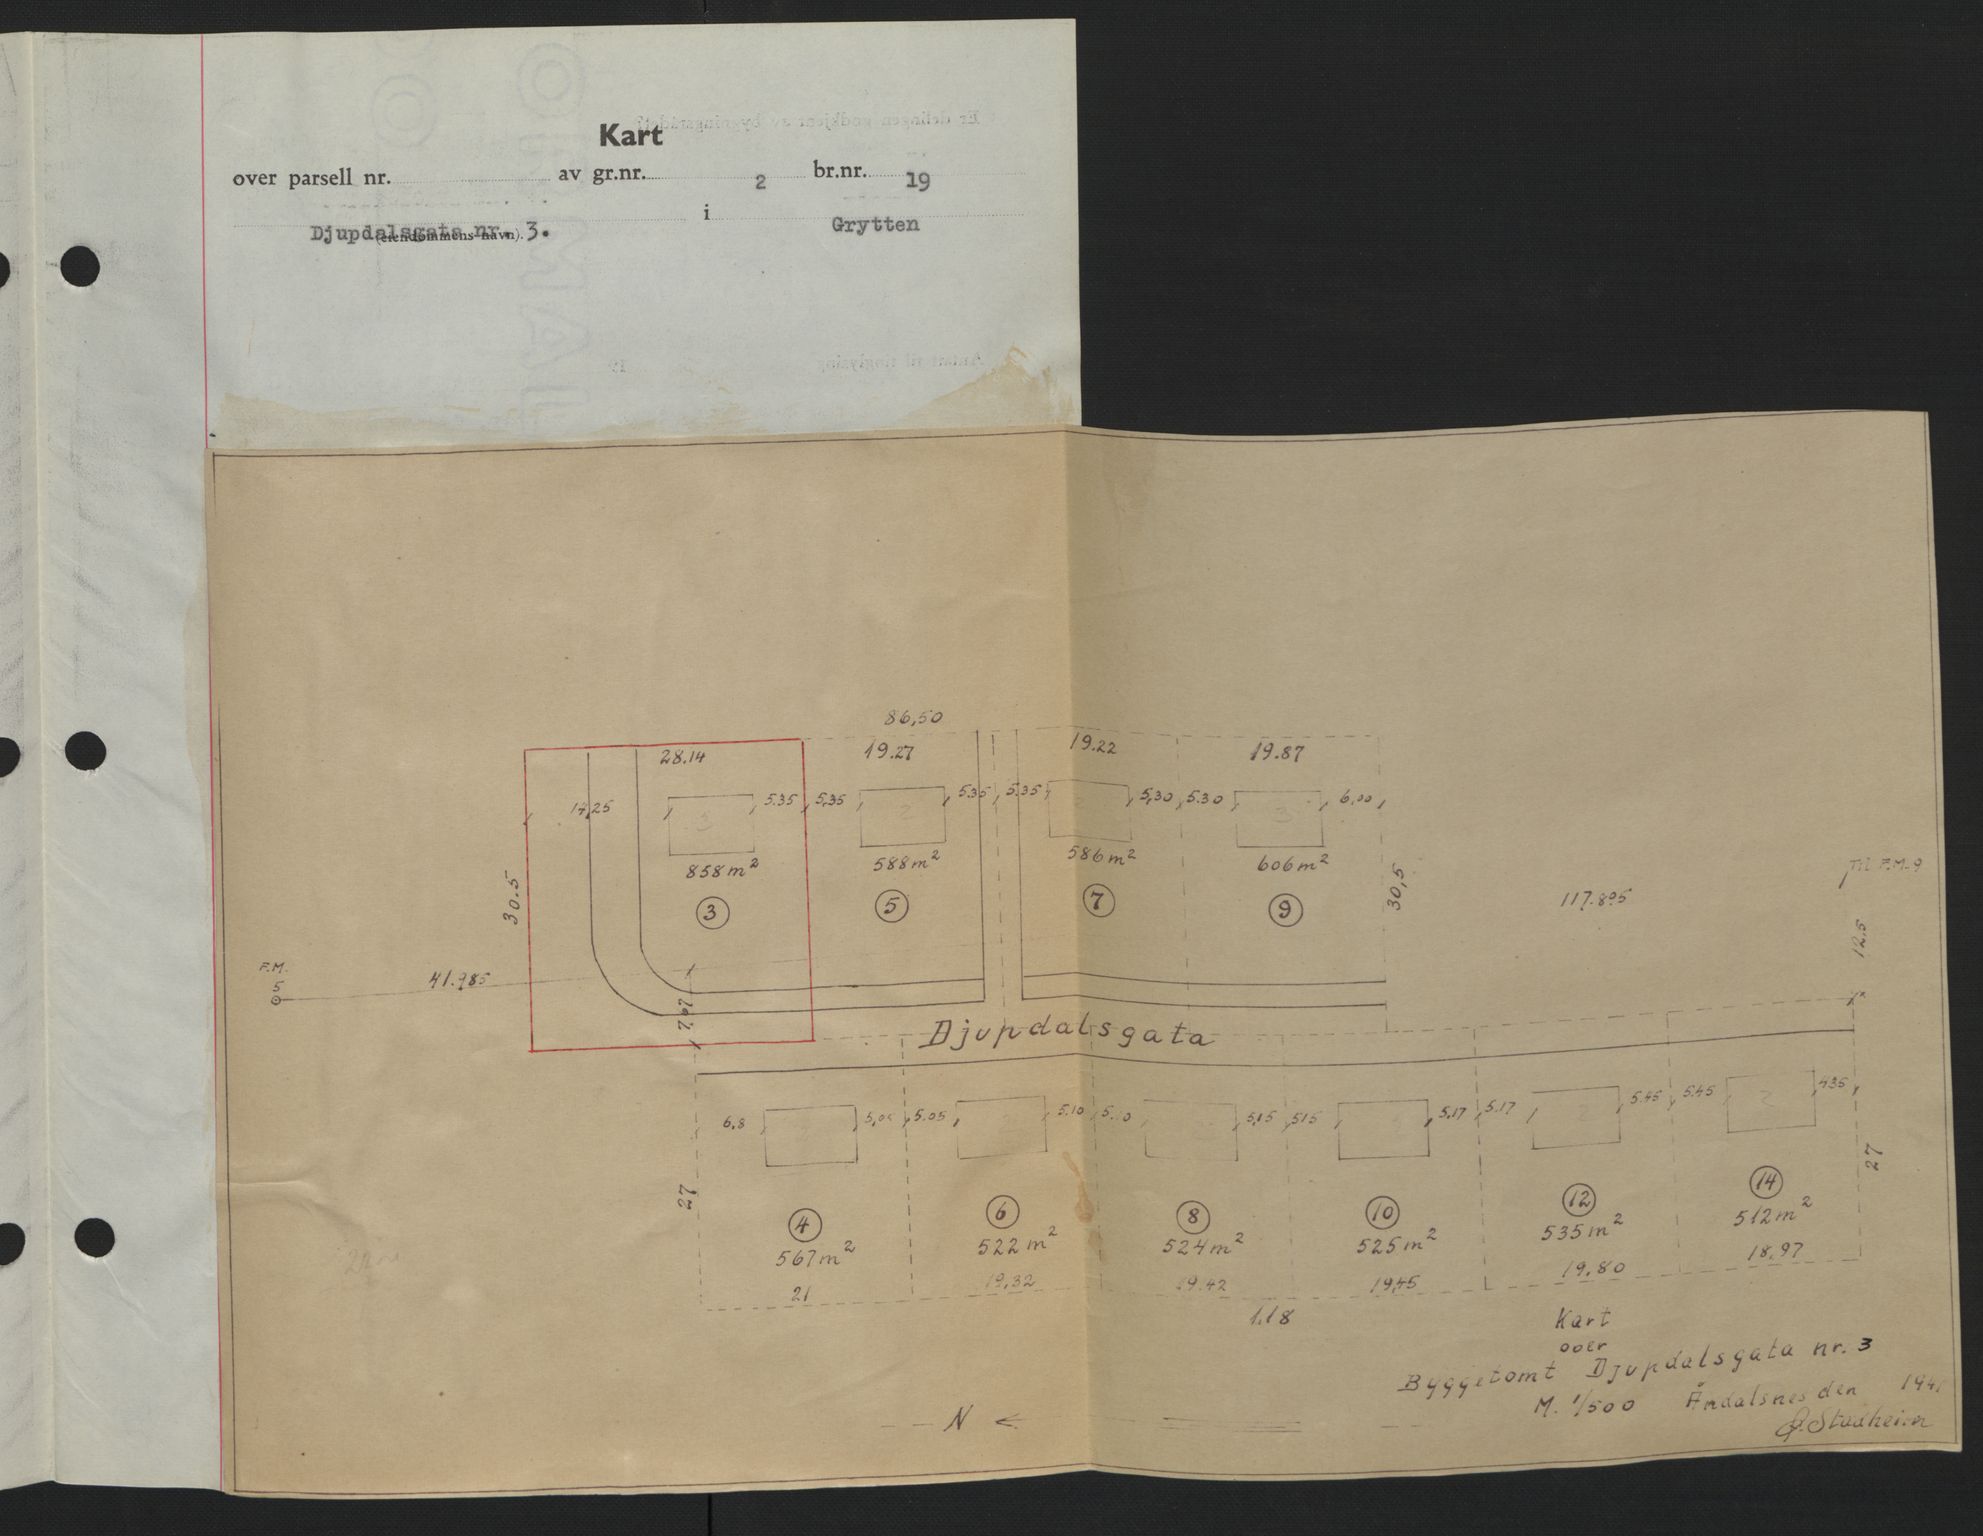 Kart
over parsell nr. av gr.nr. 2 br.nr. 19
Djupdalsgata nr. 3. i Grytten
(eiendommens navn).
86,50
28.14 19.27 19.22 19.87
14,25 5.35 5,35 5.35 5.35 5,30 5.30 6,00
3 2 2 3
858 m² 588 m² 586 m² 606 m²
3 5 7 9
30.5 30,5
117.895
Til F.M. 9
12,5
F.M.
5
41.985
7,67
Djupdalsgata
6,8 5,05 5.05 5.10 5.10 5,15 5,15 5.17 5.17 5.45 5.45 4.35
27 27
4 6 8 10 12 14
567 m² 522 m² 524 m² 525 m² 535 m² 512 m²
21 19,32 19.42 19,45 19.80 18,97
1.18
Kart
over
Byggetomt Djupdalsgata nr. 3
M. 1/500 Åndalsnes den 1941
Stadheim
N